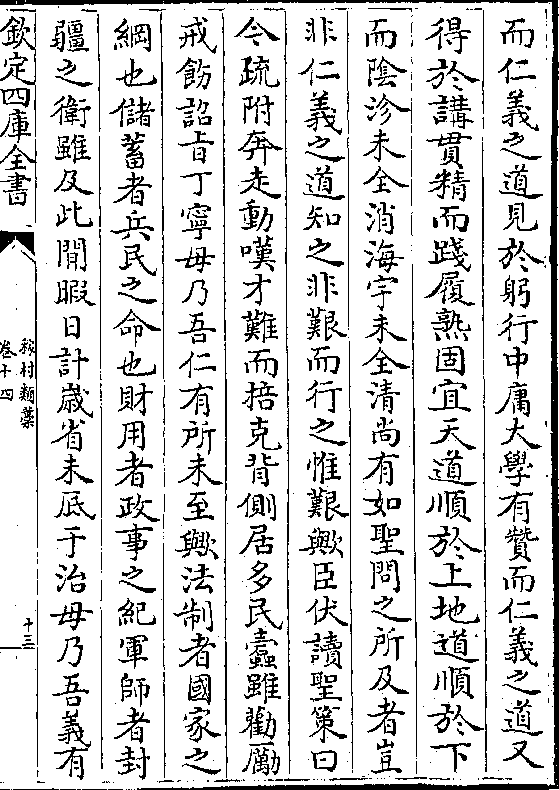 而仁義之道見於躬行中庸大學有贊而仁義之道又
得於講貫精而踐履熟固宜天道順於上地道順於下
而陰沴未全消海宇未全清尚有如聖問之所及者豈
非仁義之道知之非艱而行之惟艱歟臣伏讀聖策曰
今疏附奔走動嘆才難而掊克背側居多民蠹雖勸厲
戒飭詔旨丁寧毋乃吾仁有所未至歟法制者國家之
綱也儲蓄者兵民之命也財用者政事之紀軍師者封
疆之衛雖及此閒暇日計歲省未底于治毋乃吾義有
欽定四庫全書
稼村類藁
卷十四
十三